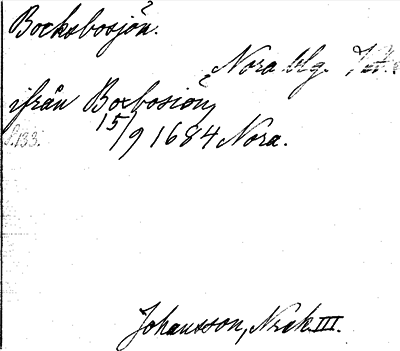 Bocksbosjön.
Nora blg.
ifrån Boxbosion,
15/9 1684 Nora.
s.133.
Johansson, Nrek III.